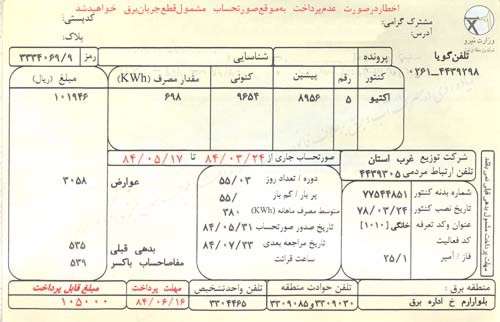 اخطار درصورت عدم پرداخت به موقع صورتحساب مشمول قطع جریان برق خواهید شد
مشترک گرامی:
کدپستی:
آدرس:
پلاک:
وزارت نیرو
تلفن گویا
۰۲۶۱-۴۴۳۹۲۹۸
پرونده
شناسایی
رمز ۳۳۳۴۰۶۹/۹
کنتور
رقم
پیشین
کنونی
مقدار مصرف (KWh)
مبلغ (ریال)
اکتیو
۵
۸۹۵۶
۹۶۵۴
۶۹۸
۱۰۱۹۴۶
شرکت توزیع غرب استان
تلفن ارتباط مردمی ۴۴۳۹۳۰۵
شماره بدنه کنتور ۷۷۵۴۴۸۵۱
تاریخ نصب کنتور ۷۸/۰۳/۲۴
عنوان وکد تعرفه خانگی [۱۰۱۰]
کد فعالیت
فاز / آمپر ۲۵/۱
صورتحساب جاری از ۸۴/۰۳/۲۴ تا ۸۴/۰۵/۱۷
دوره / تعداد روز ۵۵/۰۳
پر بار / کم بار ۵۵/
متوسط مصرف ماهانه (KWh) ۳۸۰
تاریخ صدور صورتحساب ۸۴/۰۵/۳۱
تاریخ مراجعه بعدی ۸۴/۰۷/۲۳
ساعت قرائت
عوارض ۳۰۵۸
بدهی قبلی ۵۳۵
مفاصاحساب باکسر ۵۳۹
مهلت پرداخت مشمول بدهی قبلی نمی باشد
منطقه برق:
بلوارارم خ اداره برق
تلفن حوادث منطقه
۳۳۰۹۰۳۰و۳۳۰۹۰۸۵
تلفن واحدتشخیص
۳۳۰۴۴۶۵
مهلت پرداخت
۸۴/۰۶/۱۶
مبلغ قابل پرداخت
۱۰۵۰۰۰